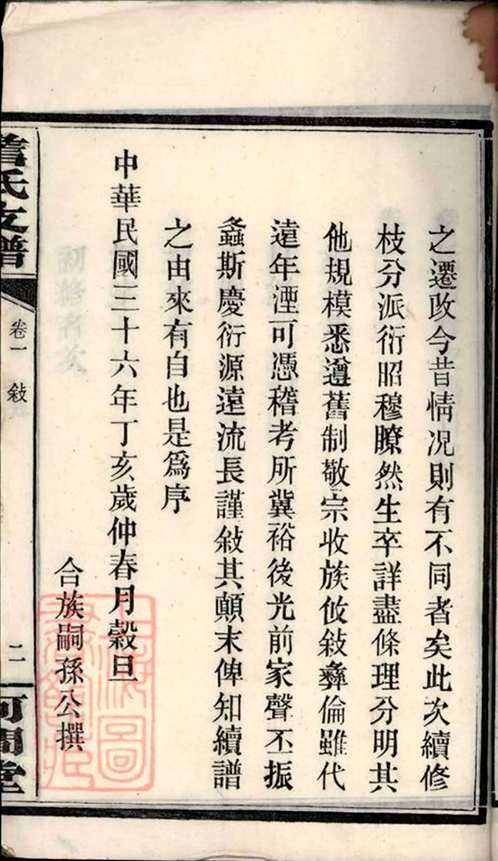 之遷改今昔情况則有不同者矣此次續修
枝分派衍昭穆瞭然生卒詳盡條理分明其
他規模悉遵舊制敬宗收族攸敍彝倫雖代
遠年湮可憑稽考所冀裕後光前家聲丕振
螽斯慶衍源遠流長謹敍其顛末俾知續譜
之由來有自也是爲序
中華民國三十六年丁亥歲仲春月穀旦
合族嗣孫公撰
氏支譜
卷一 敍
二
河間堂